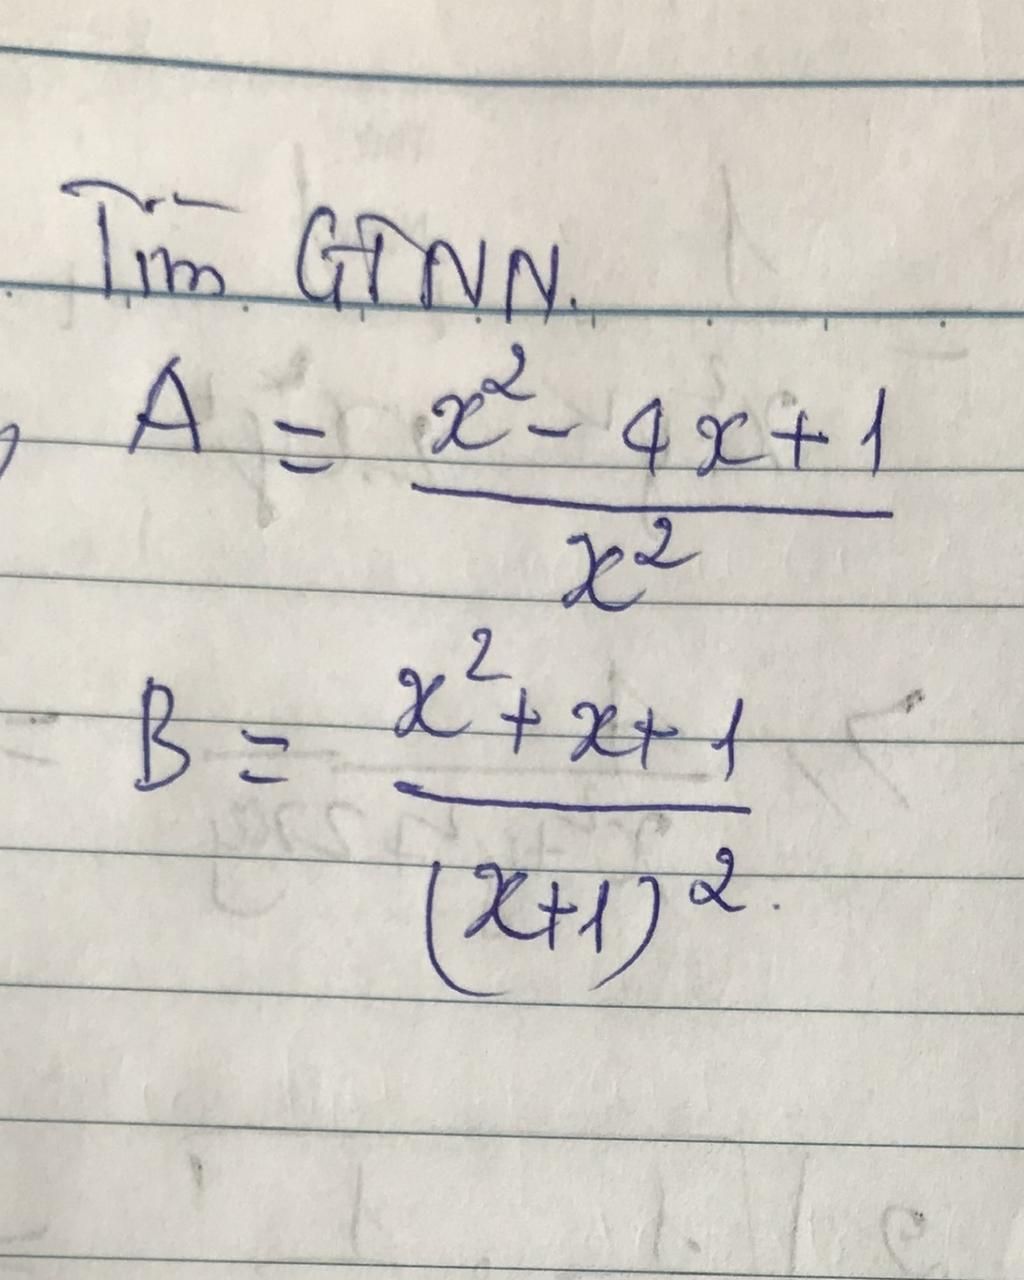 Tìm GTNN.
A = \frac{x^2 - 4x + 1}{x^2}
B = \frac{x^2 + x + 1}{(x+1)^2}.